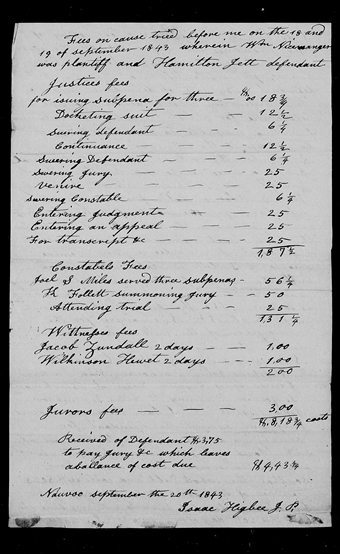 Fees on cause tried before me on the 18 and
19 of september 1843 wherein Wm Niswanger
was plantiff and Hamilton Jett defendant
Justices fees
for issuing subpena for three — $,00 18 3/4
Docketing suit — — — 12 1/2
Swering defendant — — 6 1/4
Continuance — — 12 1/2
Swering Defendant — — 6 1/4
Swering Jury — — — 25
Venire — — — 25
Swering Constable — — 6 1/4
Entering judgment — — 25
Entering an appeal — — 25
For transcrept &c — — 25
1,87 1/2
Constabels Fees
Joel S Miles served three subpenas — 56 1/4
H Follett summoning Jury — 50
Attending trial — — 25
1,31 1/4
Wittnesses fees
Jacob Zundall 2 days — — 1,00
Wilkinson Hewet 2 days — — 1,00
2 00
Jurors fees — — — 3,00
$,8,18 3/4 costs
Received of Defendant $,3,75
to pay Jury &c which leaves
aballance of cost due $4,43 3/4
Nauvoo september the 20th 1843
Isaac Higbee J. P.